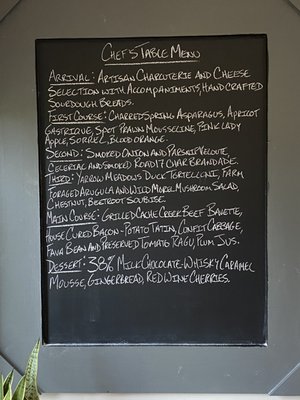 Chef's Table Menu
Arrival: Artisan Charcuterie and Cheese
Selection with Accompaniments, Hand Crafted
Sourdough Breads.
First Course: Charred Spring Asparagus, Apricot
Gastrique, Spot Prawn Mousseline, Pink Lady
Apple, Sorrel, Blood Orange.
Second: Smoked Onion and Parsnip Veloute,
Celeriac and Smoked Road 17 Char Brandade.
Third: Yarrow Meadows Duck Tortelloni, Farm
Foraged Arugula and Wild Morel Mushroom Salad,
Chestnut, Beetroot Soubise.
Main Course: Grilled Cache Creek Beef Bavette,
House Cured Bacon-Potato Tatin, Confit Cabbage,
Fava Bean and Preserved Tomato Ragu, Plum Jus.
Dessert: 38% Milk Chocolate-Whisky Caramel
Mousse, Gingerbread, Red Wine Cherries.